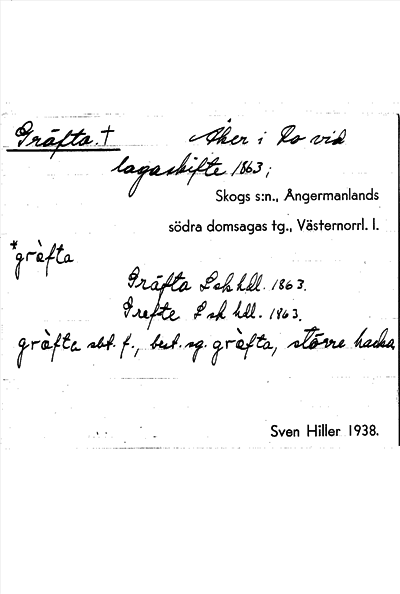 Gräfta. † Åker i Ro vid
lagaskifte 1863;
Skogs s:n., Ångermanlands
södra domsagas tg., Västernorrl. l.
*grȧ̈fta
Gräfta Lsk hdl. 1863.
Grefte Lsk hdl. 1863.
gräfta sbt. f., best. sg. gräfta, större hacka.
Sven Hiller 1938.